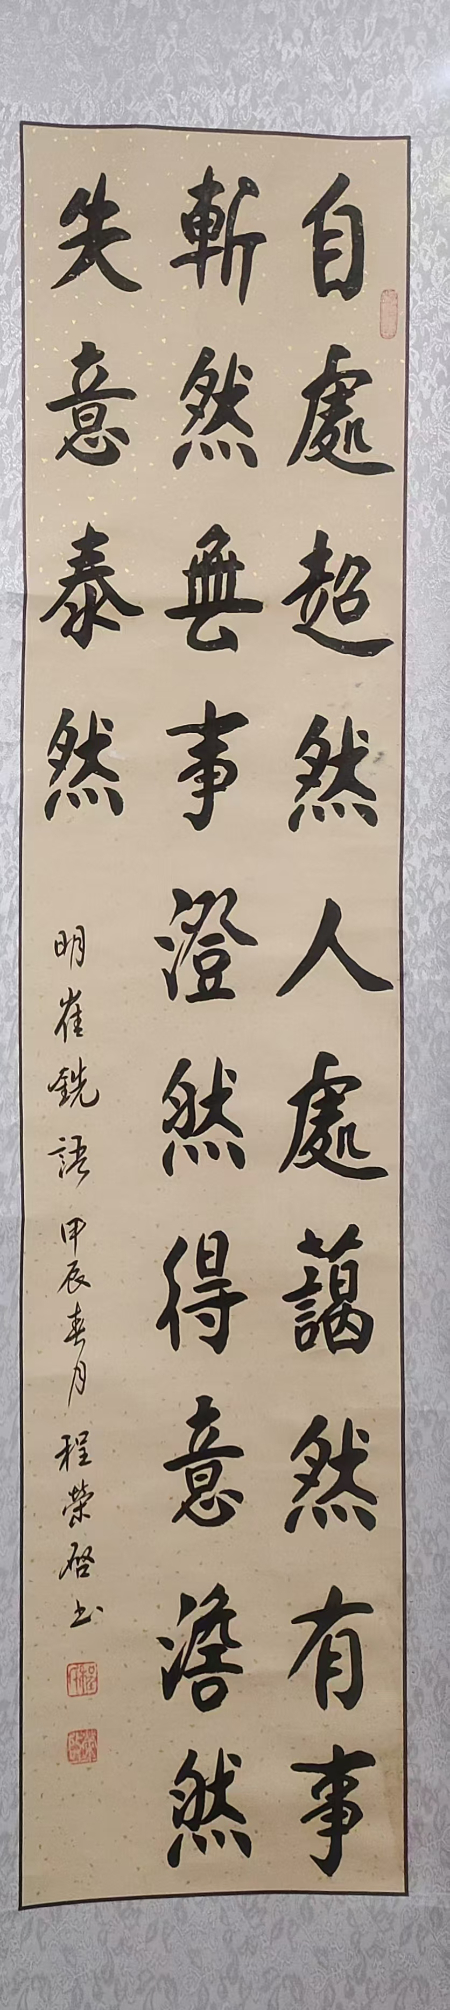 自處超然人處藹然有事
斬然無事澄然得意澹然
失意泰然
明崔銑語 甲辰春月 程榮啓书